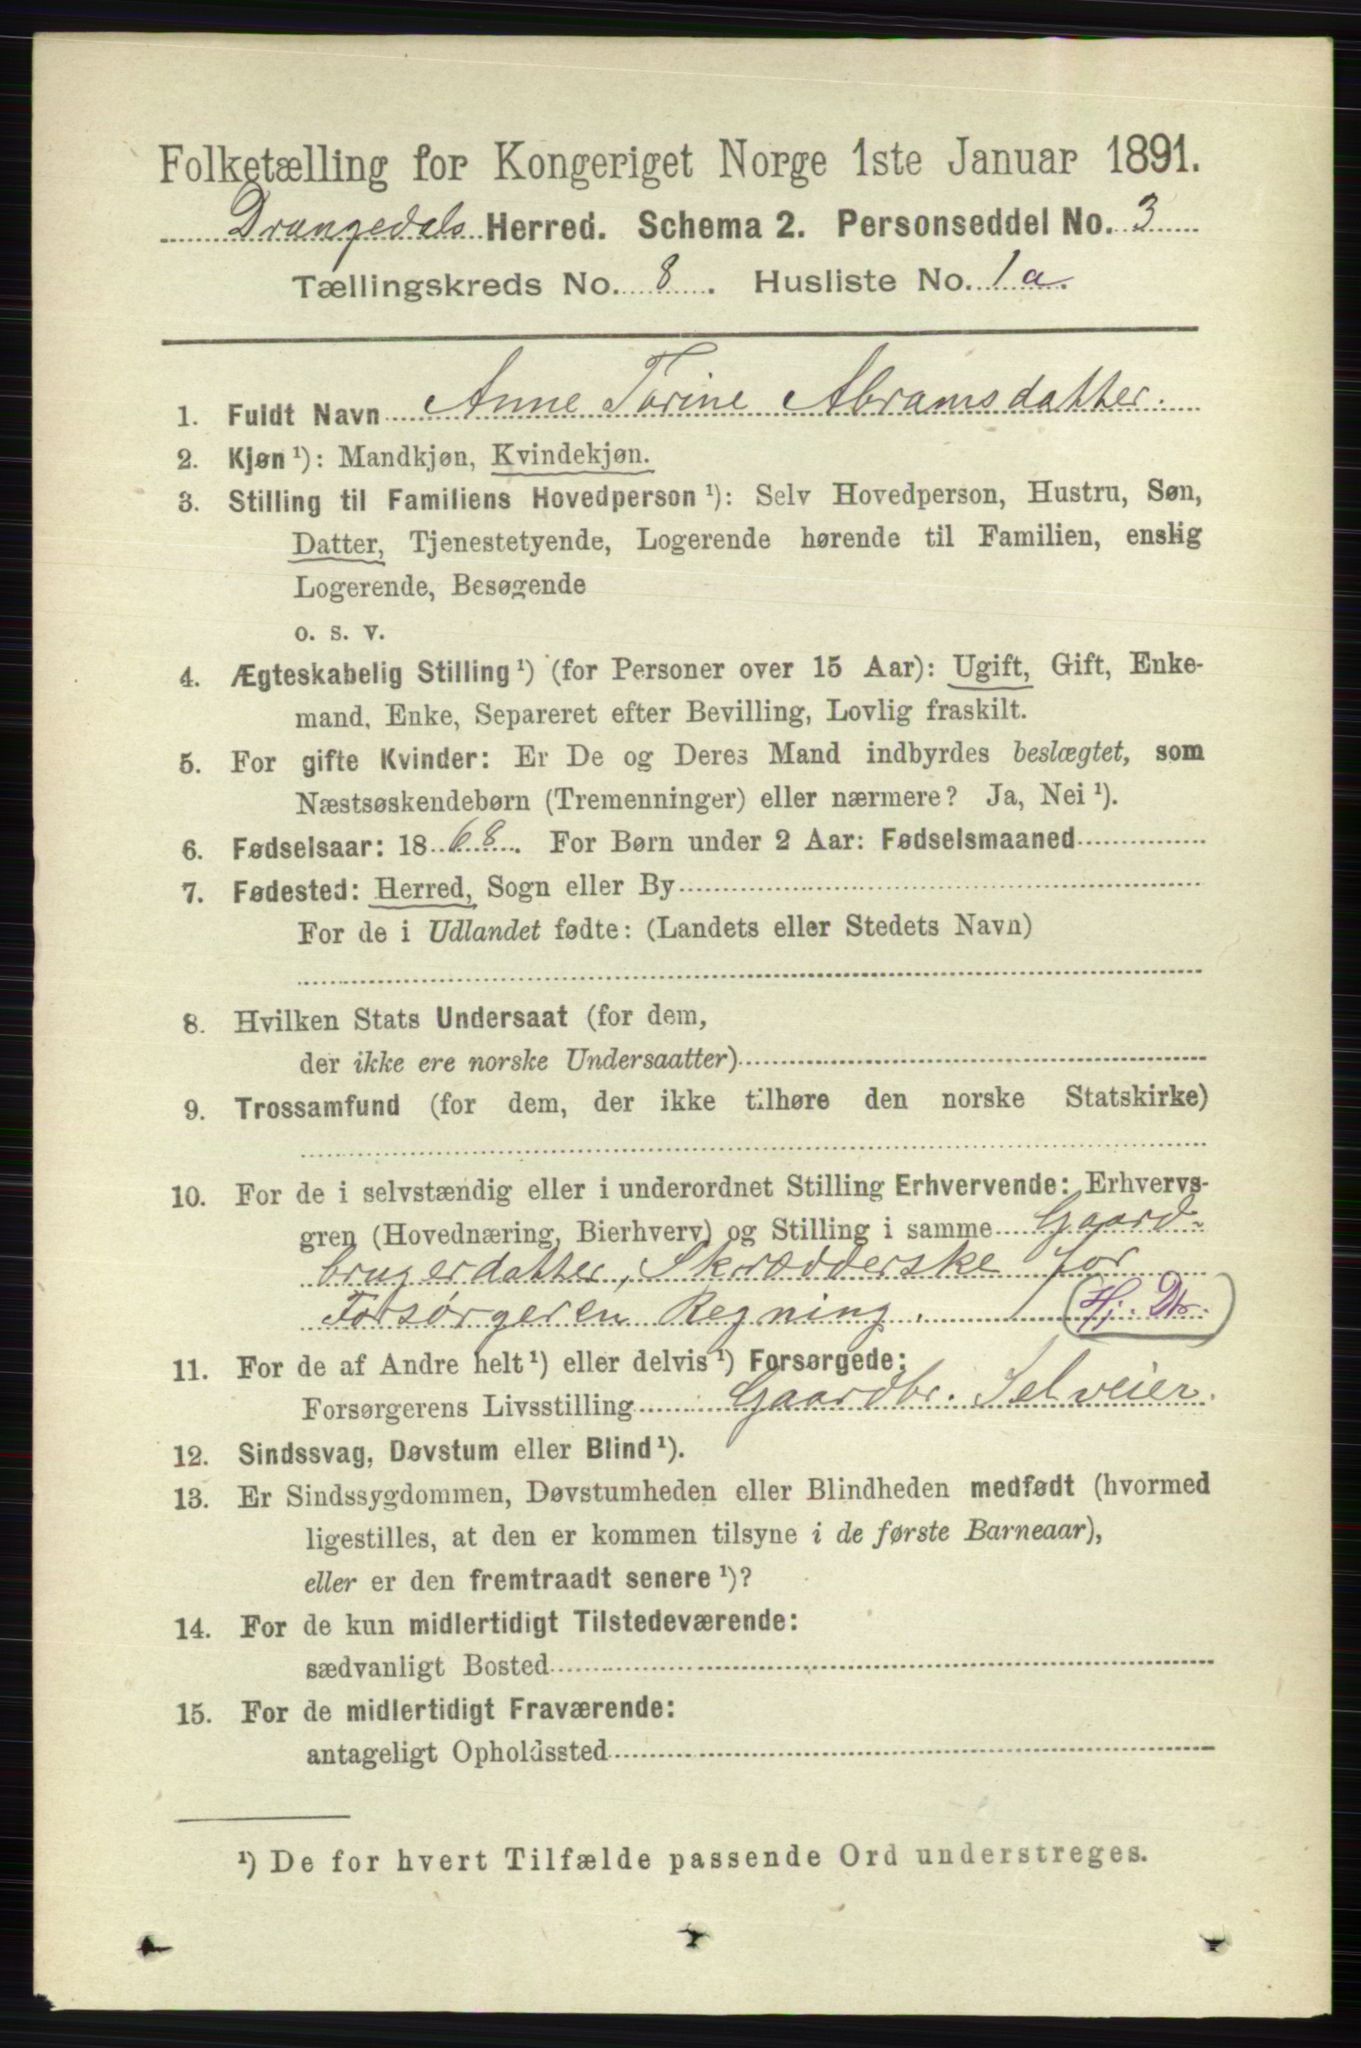 Folketælling for Kongeriget Norge 1ste Januar 1891.
Drangedals Herred. Schema 2. Personseddel No. 3
Tællingskreds No. 8. Husliste No. 1a.
1. Fuldt Navn Anne Torine Abramsdatter.
2. Kjøn ¹): Mandkjøn, Kvindekjøn.
3. Stilling til Familiens Hovedperson ¹): Selv Hovedperson, Hustru, Søn,
Datter, Tjenestetyende, Logerende hørende til Familien, enslig
Logerende, Besøgende
o. s. v.
4. Ægteskabelig Stilling ¹) (for Personer over 15 Aar): Ugift, Gift, Enke-
mand, Enke, Separeret efter Bevilling, Lovlig fraskilt.
5. For gifte Kvinder: Er De og Deres Mand indbyrdes beslægtet, som
Næstsøskendebørn (Tremenninger) eller nærmere? Ja, Nei ¹).
6. Fødselsaar: 1868. For Børn under 2 Aar: Fødselsmaaned
7. Fødested: Herred, Sogn eller By
For de i Udlandet fødte: (Landets eller Stedets Navn)
8. Hvilken Stats Undersaat (for dem,
der ikke ere norske Undersaatter)
9. Trossamfund (for dem, der ikke tilhøre den norske Statskirke)
10. For de i selvstændig eller i underordnet Stilling Erhvervende: Erhvervs-
gren (Hovednæring, Bierhverv) og Stilling i samme Gaard-
brugerdatter, Skrædderske for
Forsørgeren Regning. Hj. Dtr.
11. For de af Andre helt ¹) eller delvis ¹) Forsørgede:
Forsørgerens Livsstilling Gaardbr. Selveier.
12. Sindssvag, Døvstum eller Blind ¹).
13. Er Sindssygdommen, Døvstumheden eller Blindheden medfødt (hvormed
ligestilles, at den er kommen tilsyne i de første Barneaar),
eller er den fremtraadt senere ¹)?
14. For de kun midlertidigt Tilstedeværende:
sædvanligt Bosted
15. For de midlertidigt Fraværende:
antageligt Opholdssted
¹) De for hvert Tilfælde passende Ord understreges.